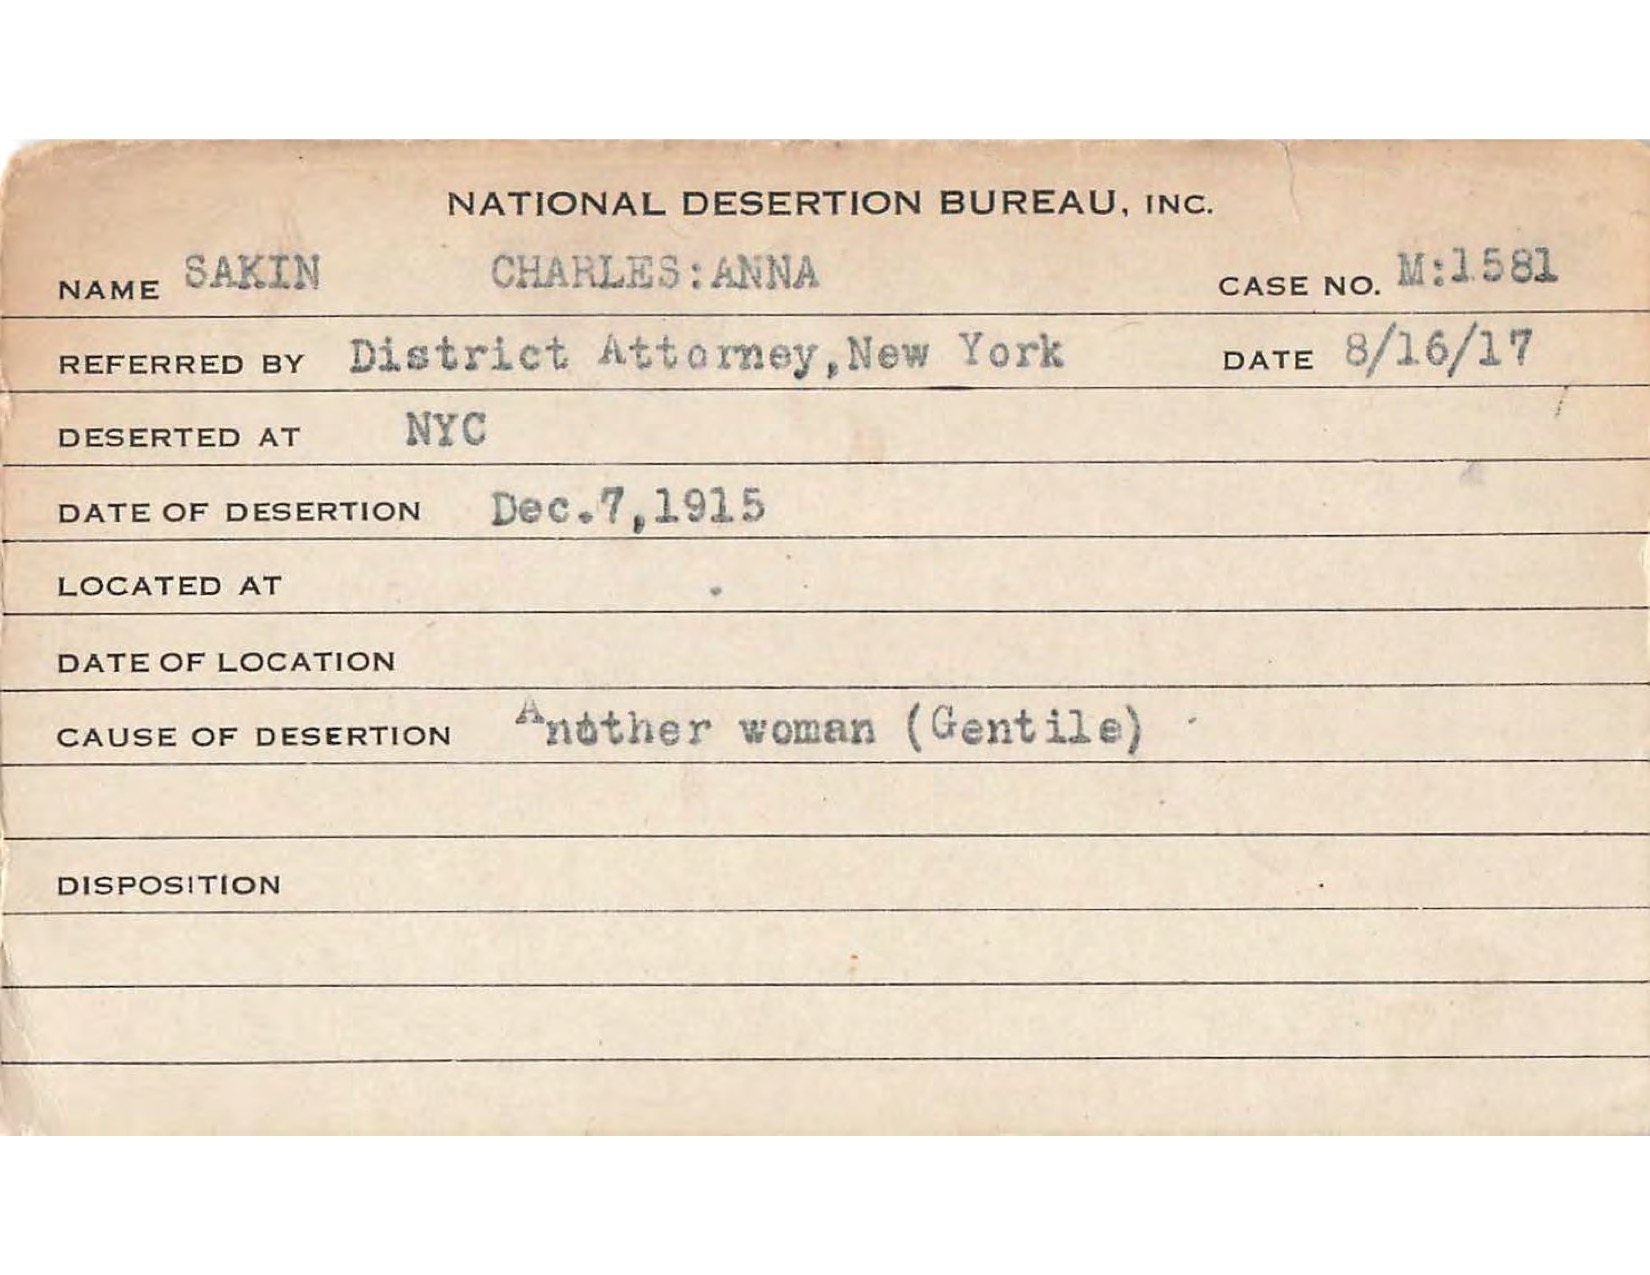 NATIONAL DESERTION BUREAU, INC.
NAME SAKIN CHARLES:ANNA CASE NO. M:1581
REFERRED BY District Attorney,New York DATE 8/16/17
DESERTED AT NYC
DATE OF DESERTION Dec.7,1915
LOCATED AT
DATE OF LOCATION
CAUSE OF DESERTION Another woman (Gentile)
DISPOSITION